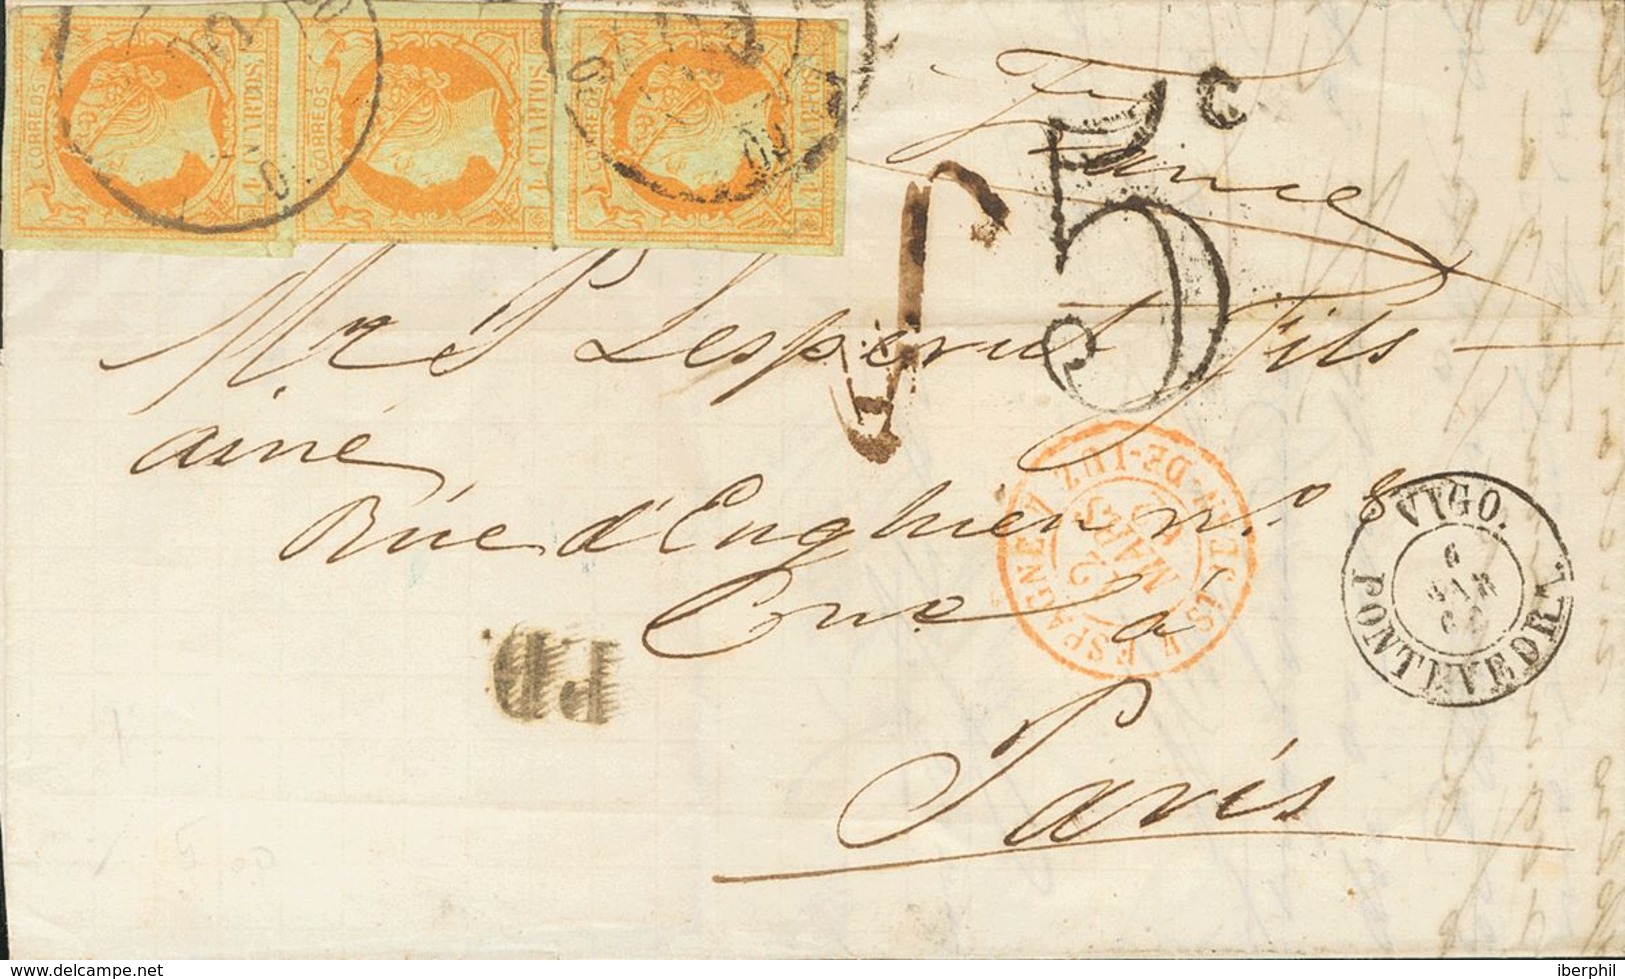 CORREOS
4 CUARTOS.
CORREOS
4 CUARTOS.
CORREOS
4 CUARTOS.
France
5c
Mr P. Lesperut fils
ainé
Rue d'Enghien n.º 8
Paris
ESPAGNE
ST-JEAN-DE-LUZ
12
MARS
60
VIGO.
6
MAR
60
PONTEVEDRA
P.D.
www.delcampe.net
iberphil